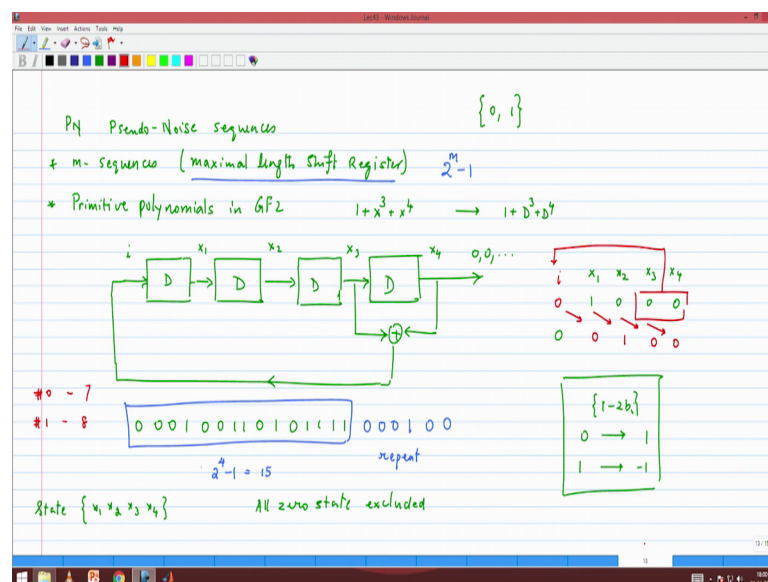 Lec43 - Windows Journal
File Edit View Insert Actions Tools Help
B I
{0, 1}
PN Pseudo-Noise sequences
* m- sequences (maximal length Shift Register) 2^m-1
* Primitive polynomials in GF2 1+x^3+x^4 → 1+D^3+D^4
i x1 x2 x3 x4 0,0,...
D D D D
+
i x1 x2 x3 x4
0 1 0 0 0
0 0 1 0 0
#0 - 7
#1 - 8
0 0 0 1 0 0 1 1 0 1 0 1 1 1 1 0 0 0 1 0 0
2^4-1 = 15 repeat
{1-2bi}
0 → 1
1 → -1
State {x1 x2 x3 x4} All zero state excluded
13 / 15
13
18:00